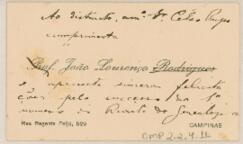 Ao distincto am.º Dr. Celso
cumprimenta
Prof. João Lourenço Rodrigues
e apresenta sinceras felicita
ções pelo successo do 1º
numero da Revista de Genealogia
Rua Regente Feijó, 829
CAMPINAS
CMP 2.2.4.